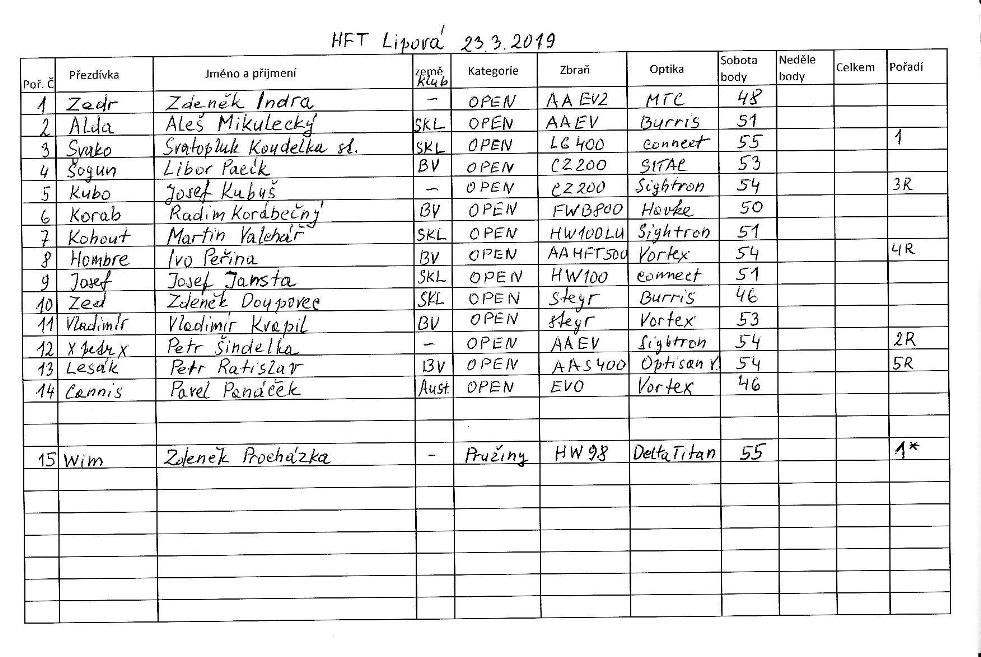 HFT Lipová 23.3.2019
Poř. Č Přezdívka Jméno a přijmení země Klub Kategorie Zbraň Optika Sobota body Neděle body Celkem Pořadí
1 Zedr Zdeněk Indra – OPEN AA EV2 MTC 48
2 Alda Aleš Mikulecký SKL OPEN AA EV Burris 51
3 Svako Svatopluk Koudelka st. SKL OPEN LG 400 connect 55 1
4 Šogun Libor Pacík BV OPEN CZ 200 SITAC 53
5 Kubo Josef Kubyš – OPEN CZ 200 Sightron 54 3R
6 Korab Radim Korábečný BV OPEN FWB800 Hawke 50
7 Kohout Martin Valchář SKL OPEN HW100LU Sightron 51
8 Hombre Ivo Peřina BV OPEN AAHFT500 Vortex 54 4R
9 Josef Josef Jansta SKL OPEN HW100 connect 51
10 Zed Zdeněk Doupovec SKL OPEN Steyr Burris 46
11 Vladimír Vladimír Kvapil BV OPEN steyr Vortex 53
12 x pedr x Petr Šindelka – OPEN AAEV Sightron 54 2R
13 Lesák Petr Ratislav BV OPEN AAS400 Optisan V. 54 5R
14 Cannis Pavel Panáček Aust. OPEN EVO Vortex 46
15 Wim Zdeněk Procházka – Pružiny HW 98 Delta Titan 55 1*